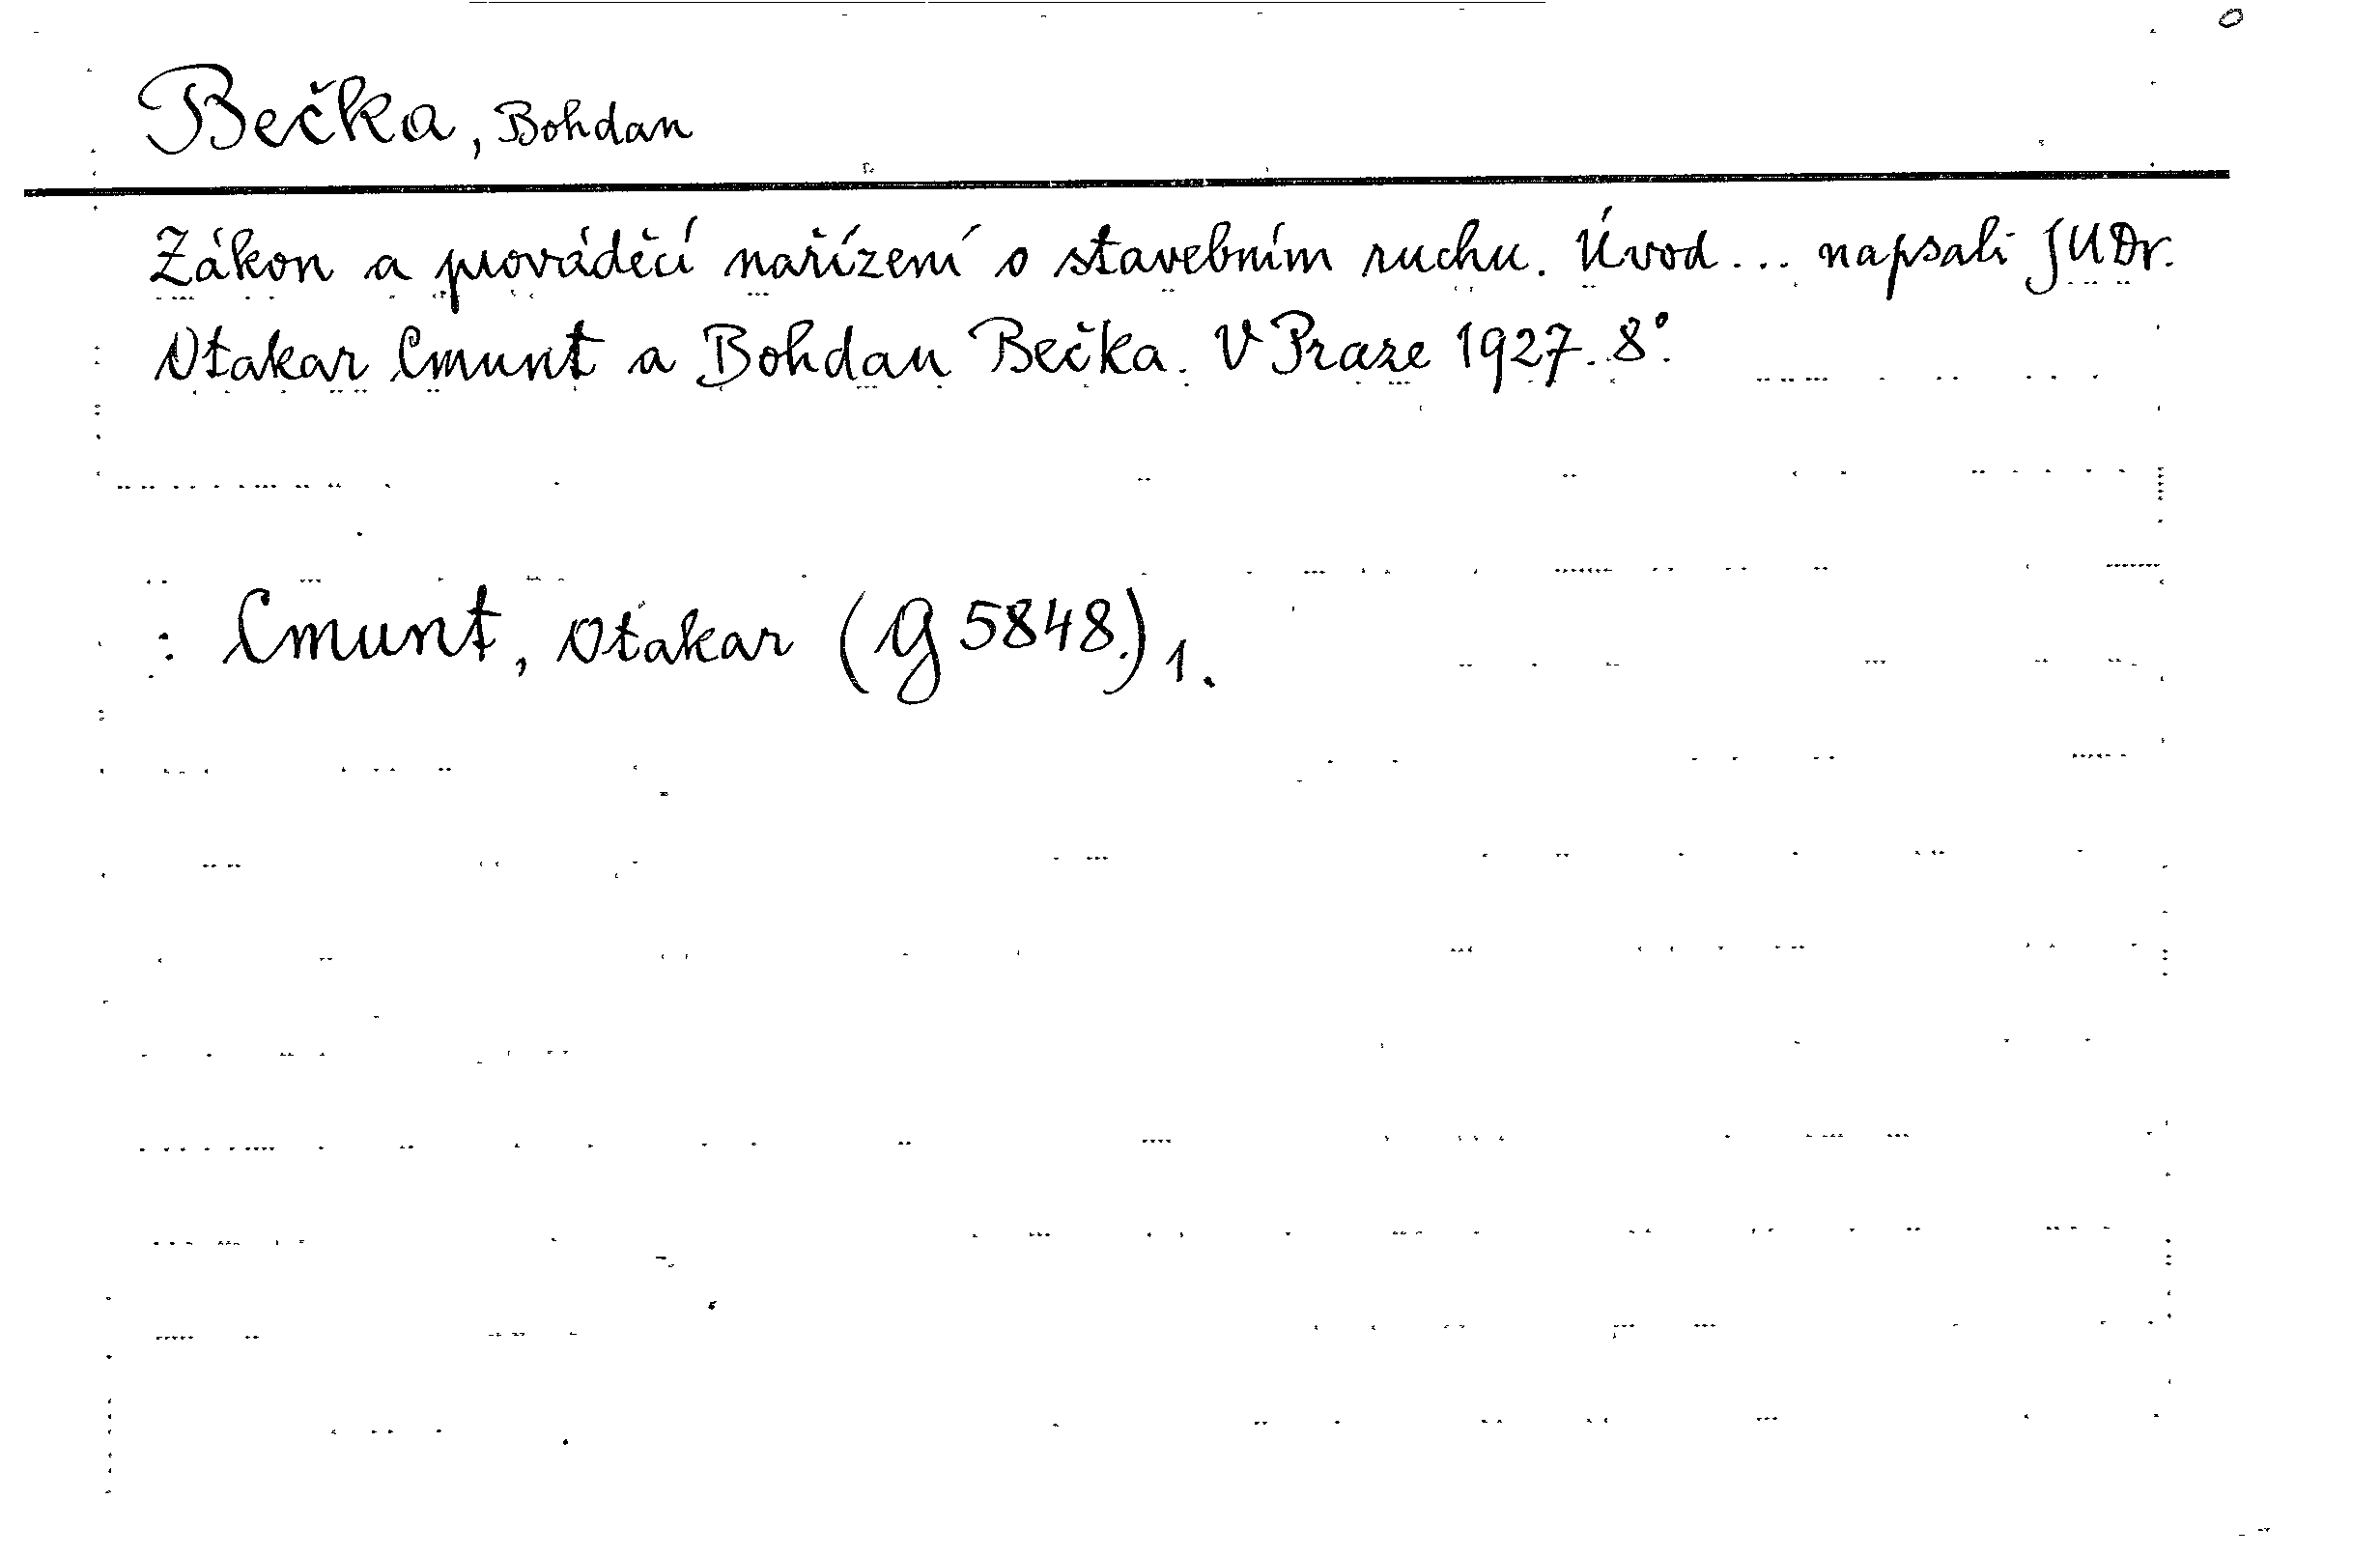 Bečka, Bohdan
Zákon a prováděcí nařízení o stavebním ruchu. Úvod... napsali JUDr.
Otakar Cmunt a Bohdan Bečka. V Praze 1927. 8°.
: Cmunt, Otakar (G 5848.) 1.